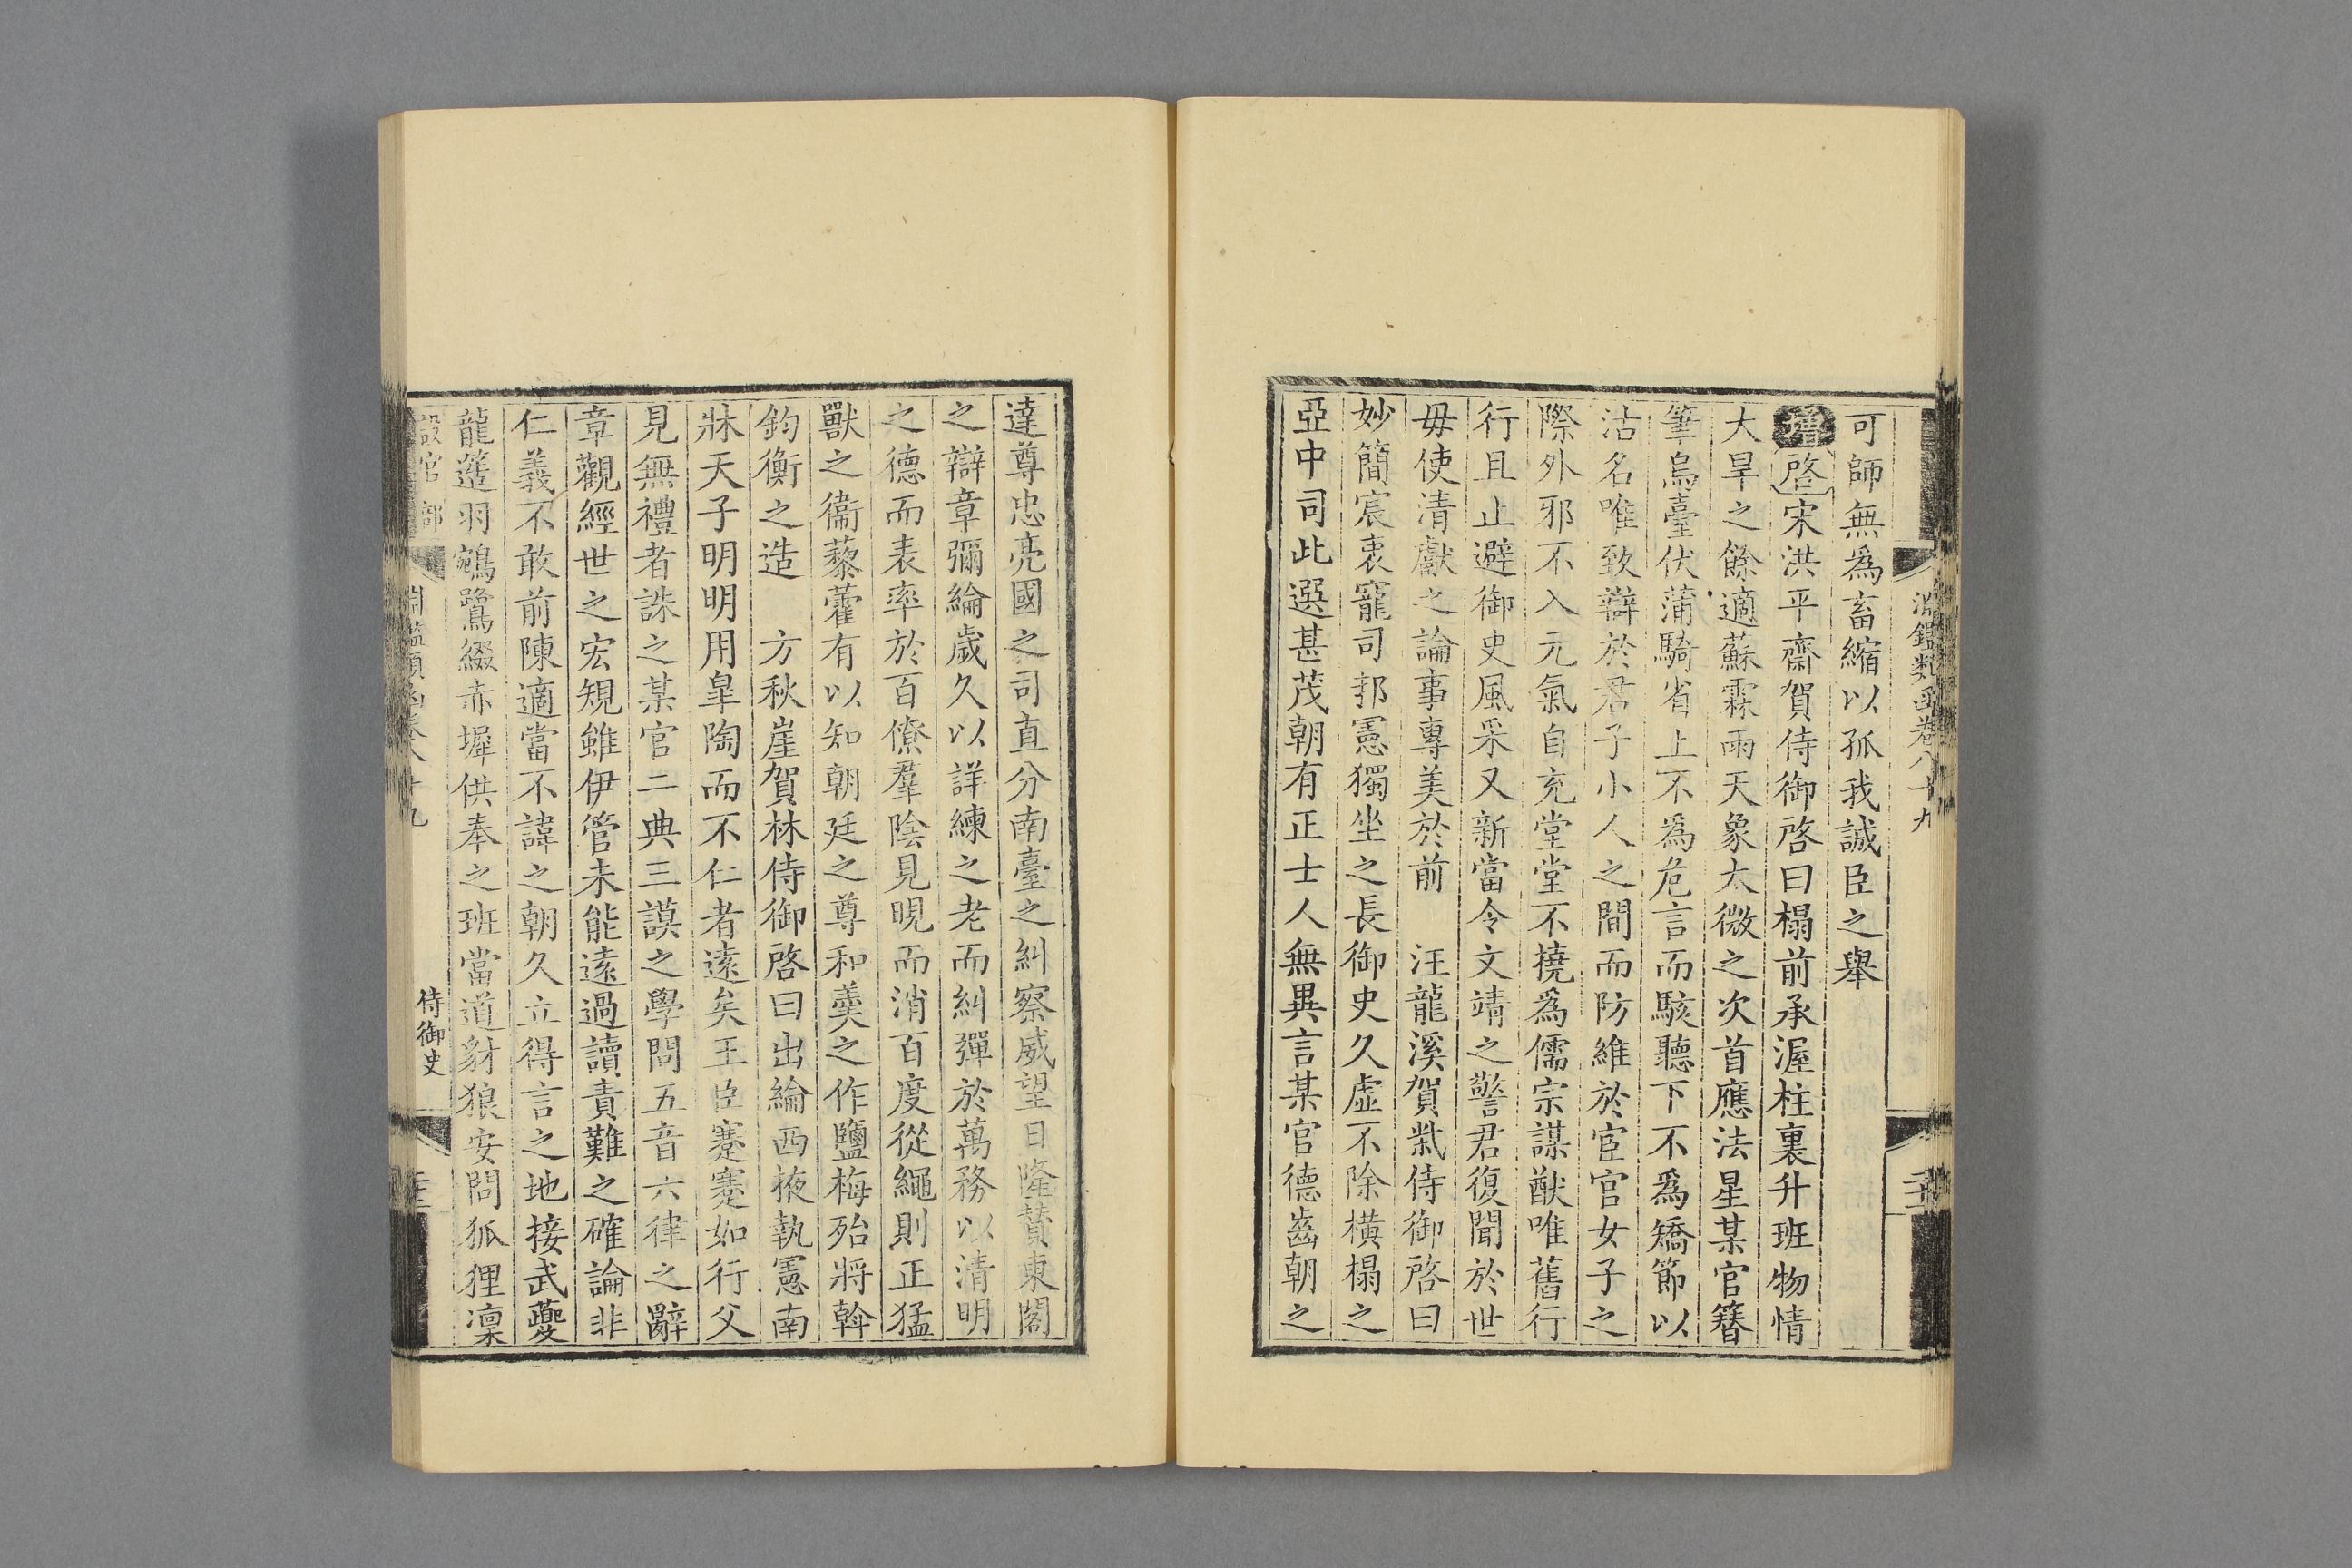 淵鑑類函卷八十九
可師無爲畜縮以孤我誠臣之舉
增啓宋洪平齋賀侍御啓曰榻前承渥柱裏升班物情
大旱之餘適蘇霖雨天象太微之次首應法星某官簪
筆烏臺伏蒲騎省上不爲危言而駭聽下不爲矯節以
沽名唯致辯於君子小人之間而防維於宦官女子之
際外邪不入元氣自充堂堂不撓爲儒宗謀猷唯舊行
行且止避御史風采又新當令文靖之警君復聞於世
毋使清獻之論事專美於前　汪龍溪賀常侍御啓曰
妙簡宸衷寵司邦憲獨坐之長御史久虛不除橫榻之
亞中司此選甚茂朝有正士人無異言某官德齒朝之
達尊忠亮國之司直分南臺之糾察威望日隆贊東閣
之辯章彌綸歲久以詳練之老而糾彈於萬務以清明
之德而表率於百僚羣陰見晛而消百度從繩則正猛
獸之衞藜藿有以知朝廷之尊和羹之作鹽梅殆將斡
鈞衡之造　方秋崖賀林侍御啓曰出綸西掖執憲南
牀天子明明用皐陶而不仁者遠矣王臣蹇蹇如行父
見無禮者誅之某官二典三謨之學問五音六律之辭
章觀經世之宏規雖伊管未能遠過讀責難之確論非
仁義不敢前陳適當不諱之朝久立得言之地接武夔
龍簉羽鵷鷺綴赤墀供奉之班當道豺狼安問狐狸凛
設官部
淵鑑類函卷八十九
侍御史